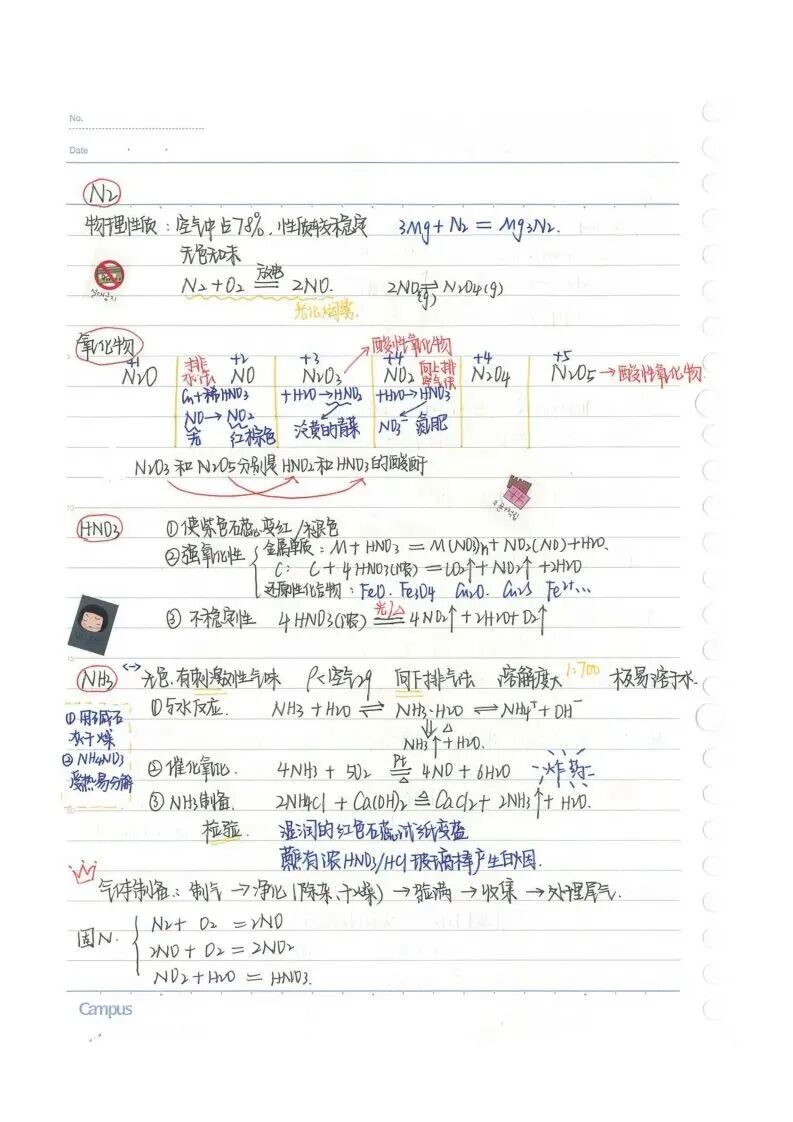 No.
Date
N2
物理性质：空气中占78%，性质较不稳定 3Mg+N2=Mg3N2.
无色无味
N2+O2 =放电= 2NO. 2NO2(g)⇌N2O4(g)
光化烟雾
氧化物
+1 +2 +3 酸性氧化物 +4 +4 +5
N2O 排水法 NO N2O3 NO2 向上排空气法 N2O4 N2O5→酸性氧化物
Cu+稀HNO3 +H2O→HNO2 +H2O→HNO3
NO→NO2 NO3⁻ 氮肥
无 红棕色 淡黄的青菜
N2O3和N2O5分别是HNO2和HNO3的酸酐
HNO3 ①使紫色石蕊变红/褪色
②强氧化性 金属单质：M+HNO3=M(NO3)n+NO2(NO)+H2O.
C：C+4HNO3(浓)=CO2↑+NO2↑+2H2O
还原性化合物：FeO. Fe3O4 Cu2O. Cu2S Fe²⁺…
③不稳定性 4HNO3(浓) =光/△= 4NO2↑+2H2O+O2↑
NH3 ↔ 无色.有刺激性气味 ρ<空气 29 向下排气法 溶解度大 1:700 极易溶于水.
①与水反应. NH3+H2O⇌NH3·H2O⇌NH4⁺+OH⁻
⇓△
NH3↑+H2O.
①用碱石灰干燥
②NH4NO3受热易分解
②催化氧化. 4NH3+5O2 =Pt/△= 4NO+6H2O 炸药
③NH3制备. 2NH4Cl+Ca(OH)2 =△= CaCl2+2NH3↑+H2O.
检验. 湿润的红色石蕊试纸变蓝
蘸有浓HNO3/HCl玻璃棒产生白烟.
气体制备：制气→净化(除杂、干燥)→验满→收集→处理尾气.
固N.
N2+O2=2NO
2NO+O2=2NO2
NO2+H2O=HNO3.
Campus